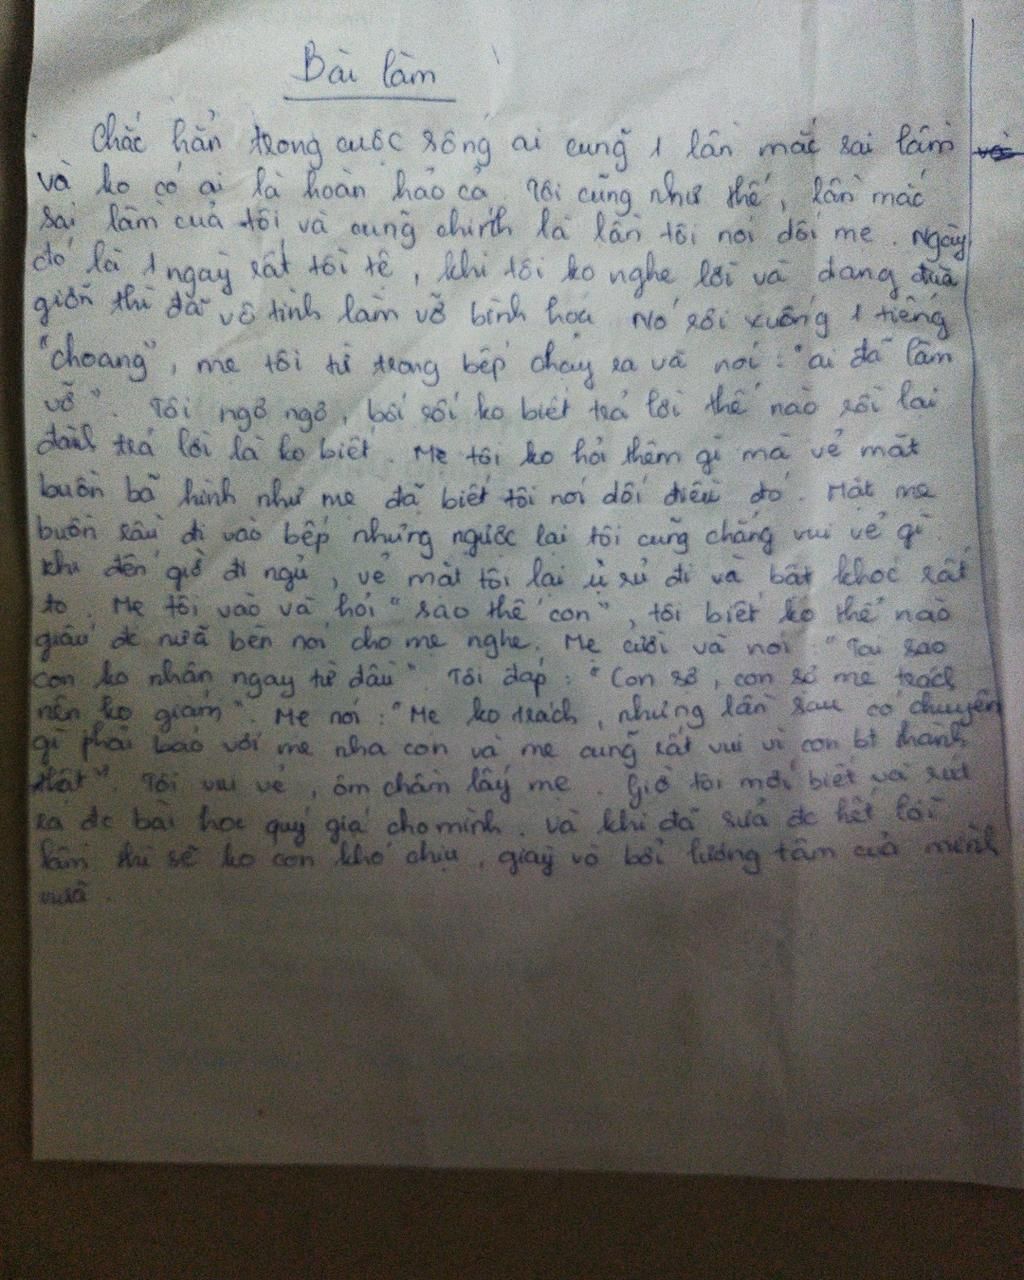 Bài làm
Chắc hẳn trong cuộc sống ai cũng 1 lần mắc sai lầm
và ko có ai là hoàn hảo cả. Tôi cũng như thế, lần mắc
sai lầm của tôi và cũng chính là lần tôi nói dối mẹ. Ngày
đó là 1 ngày rất tồi tệ, khi tôi ko nghe lời và đang đùa
giỡn thì đã vô tình làm vỡ bình hoa. Nó rơi xuống 1 tiếng
"choang", mẹ tôi từ trong bếp chạy ra và nói: "ai đã làm
vỡ". Tôi ngơ ngơ, bối rối ko biết trả lời thế nào rồi lại
đành trả lời là ko biết. Mẹ tôi ko hỏi thêm gì mà vẻ mặt
buồn bã hình như mẹ đã biết tôi nói dối điều đó. Mặt mẹ
buồn rầu đi vào bếp nhưng ngược lại tôi cũng chẳng vui vẻ gì.
Khi đến giờ đi ngủ, vẻ mặt tôi lại ủ rủ đi và bật khóc rất
to. Mẹ tôi vào và hỏi "sao thế con", tôi biết ko thể nào
giấu đc nữa bèn nói cho mẹ nghe. Mẹ cười và nói: "Tại sao
con ko nhận ngay từ đầu". Tôi đáp: "Con sợ, con sợ mẹ trách
nên ko giám". Mẹ nói: "Mẹ ko trách, nhưng lần sau có chuyện
gì phải bảo với mẹ nha con và mẹ cũng rất vui vì con bt thành
thật" Tôi vui vẻ, ôm chầm lấy mẹ. Giờ tôi mới biết và rút
ra đc bài học quý giá cho mình. Và khi đã sửa đc hết lỗi
lầm thì sẽ ko còn khó chịu, giày vò bởi lương tâm của mình
nữa.